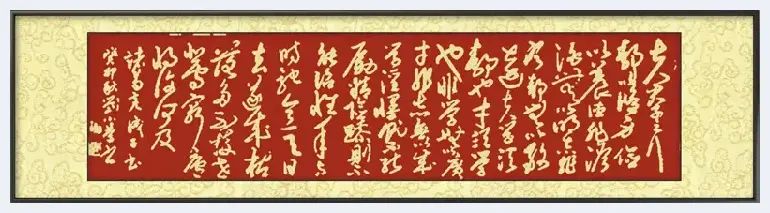 夫君子之行
静以修身俭
以养德非澹
泊无以明志非
宁静无以致
远夫君子学须
静也才须学
也非学无以广
才非志无以成
学淫慢则不能
励精险躁则不
能治性年与
时驰意与日
去遂成枯
落多不接世
悲守穷庐
将复何及
诸葛亮诫子书
癸卯秋